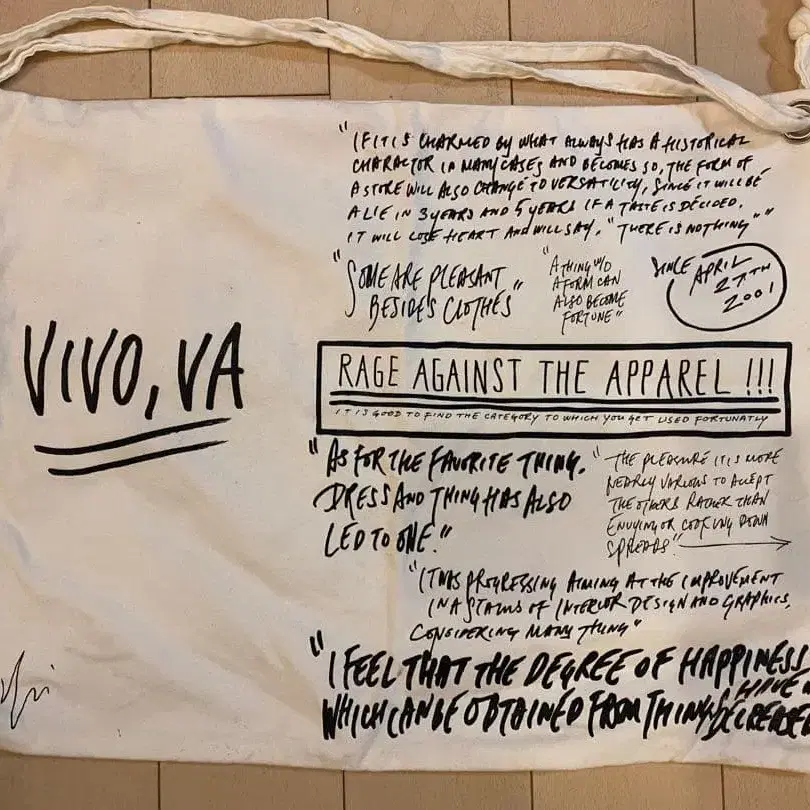 "IF IT IS CHARMED BY WHAT ALWAYS HAS A HISTORICAL
CHARACTOR IN MANY CASES AND BECOMES SO, THE FORM OF
A STORE WILL ALSO CHANGE TO VERSATILITY, SINCE IT WILL BE
A LIE IN 3 YEARS AND 5 YEARS IF A TASTE IS DECIDED.
IT WILL LOSE HEART AND WILL SAY, "THERE IS NOTHING""
"SOME ARE PLEASANT
BESIDES CLOTHES"
"A THING W/O
A FORM CAN
ALSO BECOME
FORTUNE"
SINCE APRIL
27TH
2001
VIVO, VA
RAGE AGAINST THE APPAREL !!!
IT IS GOOD TO FIND THE CATEGORY TO WHICH YOU GET USED FORTUNATLY
"AS FOR THE FAVORITE THING.
DRESS AND THING HAS ALSO
LED TO ONE."
"THE PLEASURE IT IS MORE
NEARLY VARIOUS TO ACCEPT
THE OTHERS RATHER THAN
ENVYING OR LOOKING DOWN
SPREADS."
"IT WAS PROGRESSING AIMING AT THE IMPROVEMENT
IN A STATUS OF INTERIOR DESIGN AND GRAPHICS,
CONSIDERING MANY THING"
"I FEEL THAT THE DEGREE OF HAPPINESS
WHICH CAN BE OBTAINED FROM THING HAVE
DECREASED